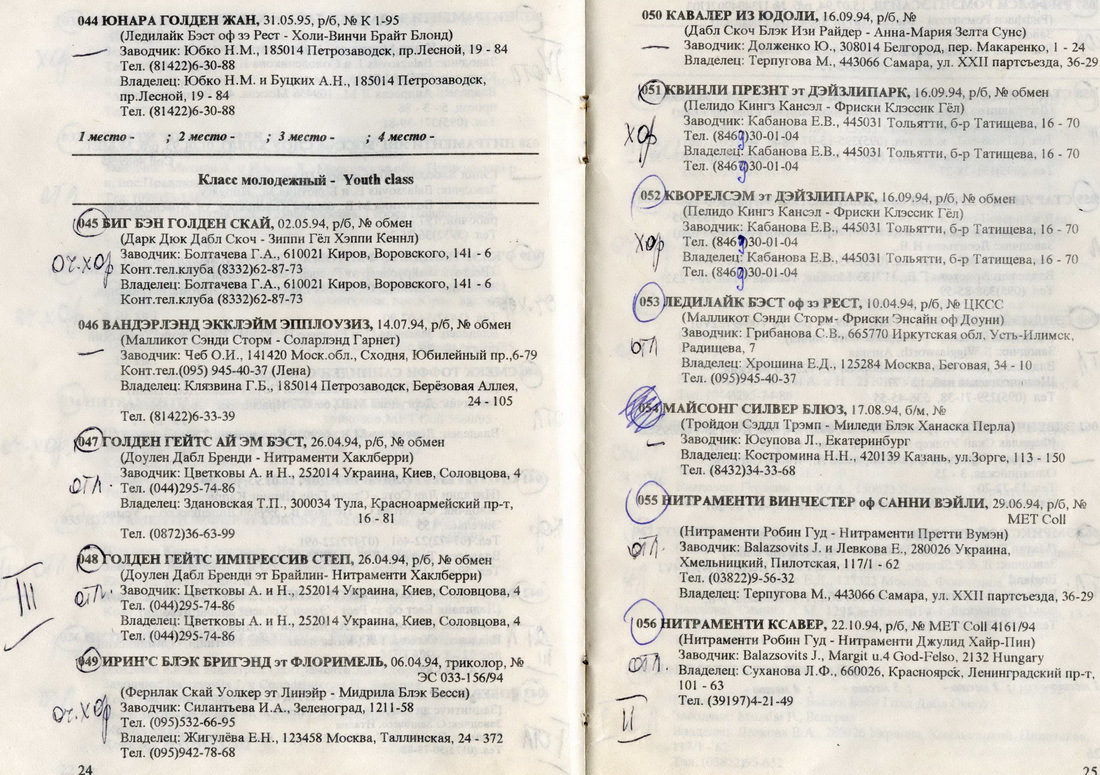 044 ЮНАРА ГОЛДЕН ЖАН, 31.05.95, р/б, № К 1-95
(Ледилайк Бэст оф зэ Рест - Холи-Винчи Брайт Блонд)
Заводчик: Юбко Н.М., 185014 Петрозаводск, пр.Лесной, 19 - 84
Тел. (81422)6-30-88
Владелец: Юбко Н.М. и Буцких А.Н., 185014 Петрозаводск,
пр.Лесной, 19 - 84
Тел. (81422)6-30-88
1 место - ; 2 место - ; 3 место - ; 4 место -
Класс молодежный - Youth class
045 БИГ БЭН ГОЛДЕН СКАЙ, 02.05.94, р/б, № обмен
(Дарк Дюк Дабл Скоч - Зиппи Гёл Хэппи Кеннл)
Заводчик: Болтачева Г.А., 610021 Киров, Воровского, 141 - 6
оч.хор
Конт.тел.клуба (8332)62-87-73
Владелец: Болтачева Г.А., 610021 Киров, Воровского, 141 - 6
Конт.тел.клуба (8332)62-87-73
046 ВАНДЭРЛЭНД ЭККЛЭЙМ ЭППЛОУЗИЗ, 14.07.94, р/б, № обмен
(Малликот Сэнди Сторм - Соларлэнд Гарнет)
Заводчик: Чеб О.И., 141420 Моск.обл., Сходня, Юбилейный пр.,6-79
Конт.тел.(095) 945-40-37 (Лена)
Владелец: Клязвина Г.Б., 185014 Петрозаводск, Берёзовая Аллея,
24 - 105
Тел. (81422)6-33-39
047 ГОЛДЕН ГЕЙТС АЙ ЭМ БЭСТ, 26.04.94, р/б, № обмен
(Доулен Дабл Бренди - Нитраменти Хаклберри)
Заводчик: Цветковы А. и Н., 252014 Украина, Киев, Соловцова, 4
отл. Тел. (044)295-74-86
Владелец: Здановская Т.П., 300034 Тула, Красноармейский пр-т,
16 - 81
Тел. (0872)36-63-99
048 ГОЛДЕН ГЕЙТС ИМПРЕССИВ СТЕП, 26.04.94, р/б, № обмен
(Доулен Дабл Бренди эт Брайлин- Нитраменти Хаклберри)
III отл. Заводчик: Цветковы А. и Н., 252014 Украина, Киев, Соловцова, 4
Тел. (044)295-74-86
Владелец: Цветковы А. и Н., 252014 Украина, Киев, Соловцова, 4
Тел. (044)295-74-86
049 ИРИН'С БЛЭК БРИГЭНД эт ФЛОРИМЕЛЬ, 06.04.94, триколор, №
ЭС 033-156/94
(Фернлак Скай Уолкер эт Линэйр - Мидрила Блэк Бесси)
оч.хор Заводчик: Силантьева И.А., Зеленоград, 1211-58
Тел. (095)532-66-95
Владелец: Жигулёва Е.Н., 123458 Москва, Таллинская, 24 - 372
Тел. (095)942-78-68
24
050 КАВАЛЕР ИЗ ЮДОЛИ, 16.09.94, р/б, №
(Дабл Скоч Блэк Изи Райдер - Анна-Мария Зелта Сунс)
Заводчик: Долженко Ю., 308014 Белгород, пер. Макаренко, 1 - 24
Владелец: Терпугова М., 443066 Самара, ул. XXII партсъезда, 36-29
051 КВИНЛИ ПРЕЗНТ эт ДЭЙЗЛИПАРК, 16.09.94, р/б, № обмен
(Пелидо Кингз Кансэл - Фриски Клэссик Гёл)
Заводчик: Кабанова Е.В., 445031 Тольятти, б-р Татищева, 16 - 70
хор Тел. (8469)30-01-04
Владелец: Кабанова Е.В., 445031 Тольятти, б-р Татищева, 16 - 70
Тел. (8469)30-01-04
052 КВОРЕЛСЭМ эт ДЭЙЗЛИПАРК, 16.09.94, р/б, № обмен
(Пелидо Кингз Кансэл - Фриски Клэссик Гёл)
Заводчик: Кабанова Е.В., 445031 Тольятти, б-р Татищева, 16 - 70
хор Тел. (8469)30-01-04
Владелец: Кабанова Е.В., 445031 Тольятти, б-р Татищева, 16 - 70
Тел. (8469)30-01-04
053 ЛЕДИЛАЙК БЭСТ оф зэ РЕСТ, 10.04.94, р/б, № ЦКСС
(Малликот Сэнди Сторм- Фриски Энсайн оф Доуни)
Заводчик: Грибанова С.В., 665770 Иркутская обл, Усть-Илимск,
отл Радищева, 7
Владелец: Хрошина Е.Д., 125284 Москва, Беговая, 34 - 10
Тел. (095)945-40-37
054 МАЙСОНГ СИЛВЕР БЛЮЗ, 17.08.94, б/м, №
(Тройдон Сэддл Трэмп - Миледи Блэк Ханаска Перла)
Заводчик: Юсупова Л., Екатеринбург
Владелец: Костромина Н.Н., 420139 Казань, ул.Зорге, 113 - 150
Тел. (8432)34-33-68
055 НИТРАМЕНТИ ВИНЧЕСТЕР оф САННИ ВЭЙЛИ, 29.06.94, р/б, №
MET Coll
(Нитраменти Робин Гуд - Нитраменти Претти Вумэн)
отл. Заводчик: Balazsovits J. и Левкова Е., 280026 Украина,
Хмельницкий, Пилотская, 117/1 - 62
Тел. (03822)9-56-32
Владелец: Терпугова М., 443066 Самара, ул. XXII партсъезда, 36-29
056 НИТРАМЕНТИ КСАВЕР, 22.10.94, р/б, № MET Coll 4161/94
(Нитраменти Робин Гуд - Нитраменти Джулид Хайр-Пин)
Заводчик: Balazsovits J., Margit u.4 God-Felso, 2132 Hungary
отл. Владелец: Суханова Л.Ф., 660026, Красноярск, Ленинградский пр-т,
101 - 63
II Тел. (39197)4-21-49
25